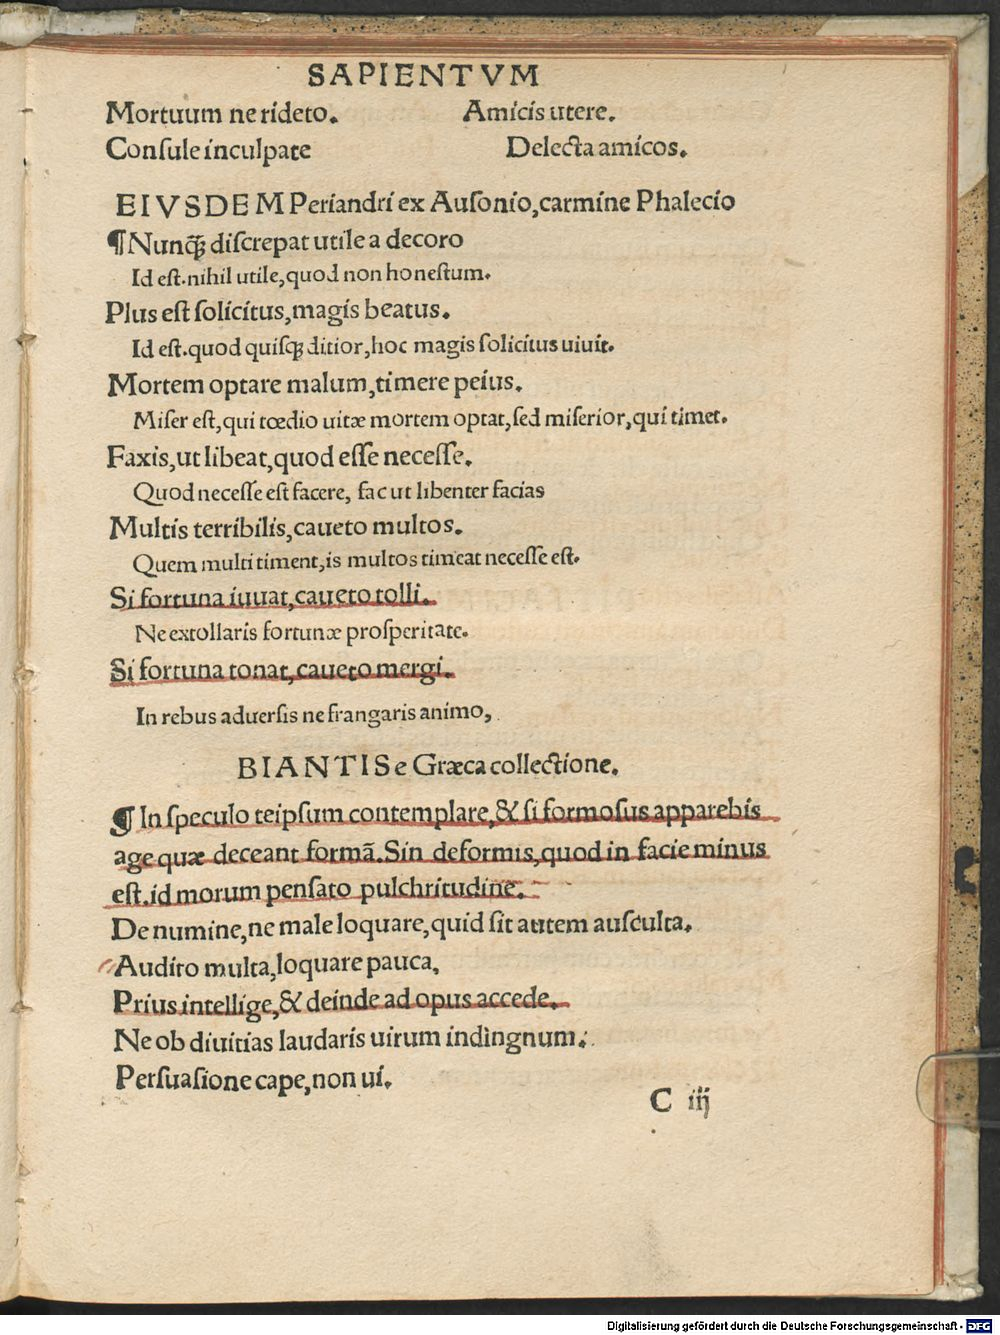 SAPIENTVM
Mortuum ne rideto. Amicis utere.
Consule inculpate Delecta amicos.
EIVSDEM Periandri ex Ausonio, carmine Phalecio
¶ Nunq̃ꝫ discrepat utile a decoro
Id est. nihil utile, quod non honestum.
Plus est solicitus, magis beatus.
Id est. quod quisqꝫ ditior, hoc magis solicitus uiuit.
Mortem optare malum, timere peius.
Miser est, qui tœdio uitæ mortem optat, sed miserior, qui timet.
Faxis, ut libeat, quod esse necesse.
Quod necesse est facere, fac ut libenter facias
Multis terribilis, caueto multos.
Quem multi timent, is multos timeat necesse est.
Si fortuna iuuat, caueto tolli.
Ne extollaris fortunæ prosperitate.
Si fortuna tonat, caueto mergi.
In rebus aduersis ne frangaris animo,
BIANTIS e Græca collectione.
¶ In speculo teipsum contemplare, & si formosus apparebis
age quæ deceant formā. Sin deformis, quod in facie minus
est. id morum pensato pulchritudine.
De numine, ne male loquare, quid sit autem ausculta.
Audito multa, loquare pauca.
Prius intellige, & deinde ad opus accede.
Ne ob diuitias laudaris uirum indingnum.
Persuasione cape, non ui.
C iij
Digitalisierung gefördert durch die Deutsche Forschungsgemeinschaft - DFG